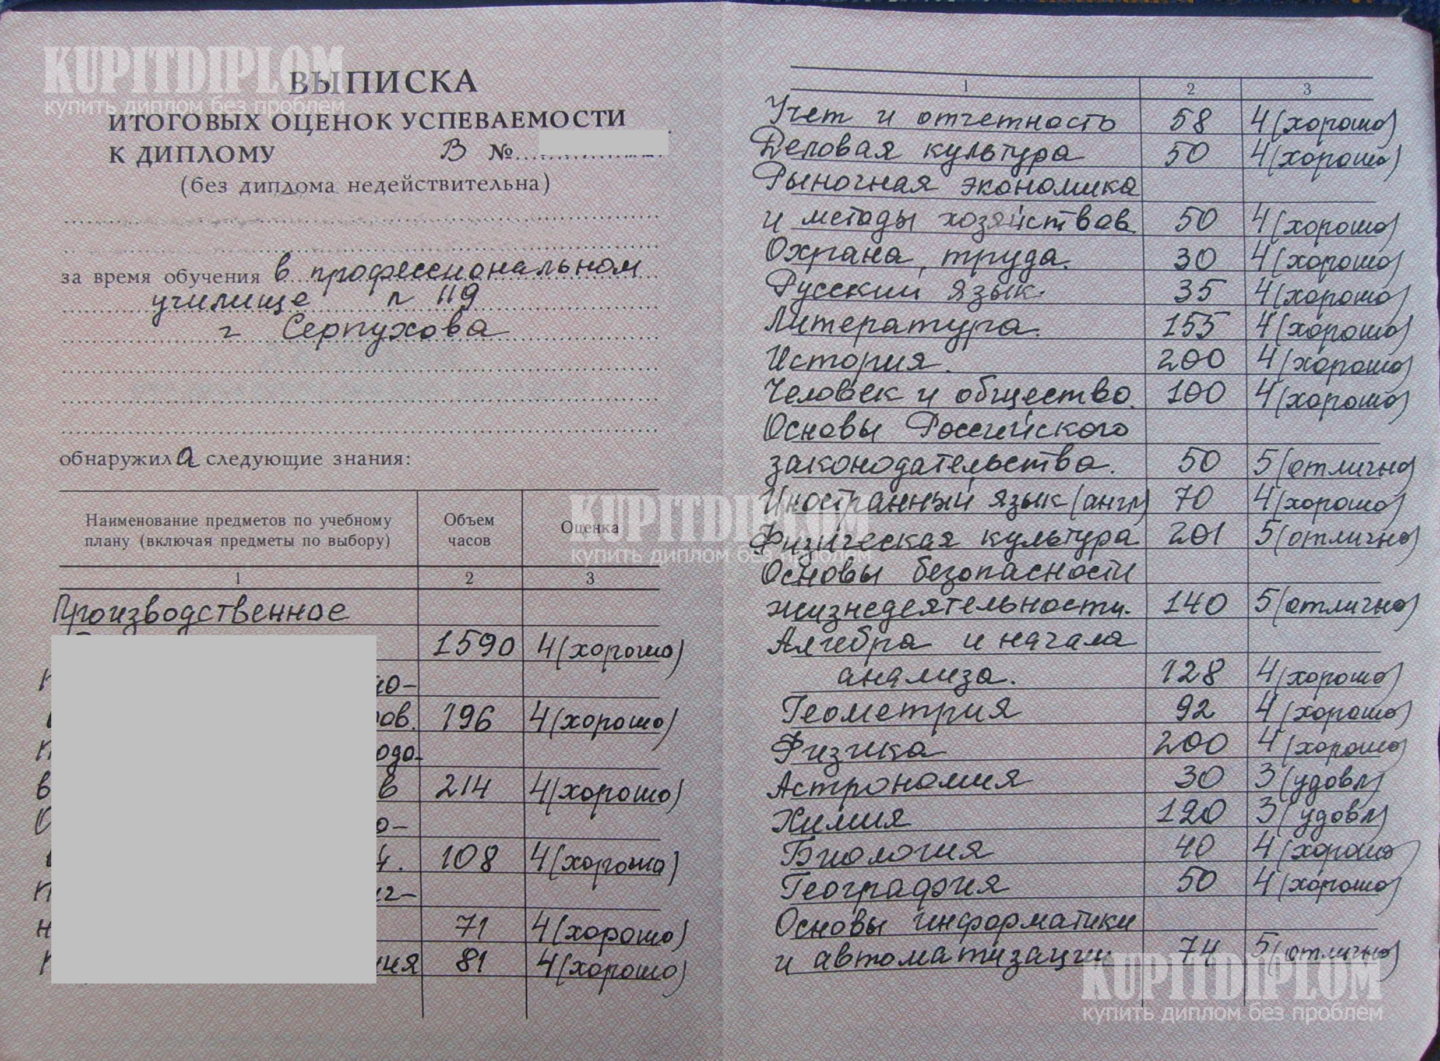 KUPITDIPLOM
купить диплом без проблем
ВЫПИСКА
ИТОГОВЫХ ОЦЕНОК УСПЕВАЕМОСТИ
К ДИПЛОМУ В №
(без диплома недействительна)
за время обучения в профессиональном
училище п 119
г Серпухова
обнаружила следующие знания:
Наименование предметов по учебному плану (включая предметы по выбору) Объем часов Оценка
1 2 3
Производственное
1590 4(хорошо)
196 4(хорошо)
214 4(хорошо)
108 4(хорошо)
71 4(хорошо)
81 4(хорошо)
1 2 3
Учет и отчетность 58 4(хорошо)
Деловая культура 50 4(хорошо)
Рыночная экономика
и методы хозяйствов. 50 4(хорошо)
Охрана труда. 30 4(хорошо)
Русский язык. 35 4(хорошо)
Литература. 155 4(хорошо)
История. 200 4(хорошо)
Человек и общество. 100 4(хорошо)
Основы Российского
законодательства. 50 5(отлично)
Иностранный язык(англ) 70 4(хорошо)
KUPITDIPLOM
купить диплом без проблем
Физическая культура 201 5(отлично)
Основы безопасности
жизнедеятельности. 140 5(отлично)
Алгебра и начала
анализа. 128 4(хорошо)
Геометрия 92 4(хорошо)
Физика 200 4(хорошо)
Астрономия 30 3(удовл)
Химия 120 3(удовл)
Биология 40 4(хорошо)
География 50 4(хорошо)
Основы информатики
и автоматизации 74 5(отлично)
KUPITDIPLOM
купить диплом без проблем